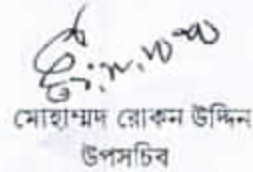 মোহাম্মদ রোকন উদ্দিন
উপসচিব